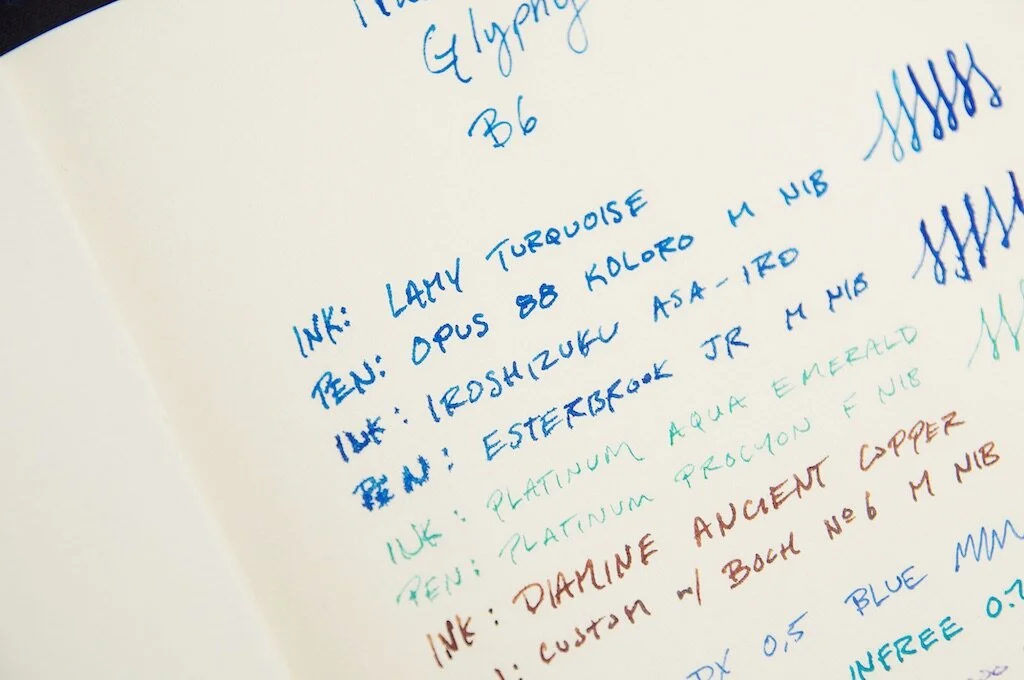 Glyphy
B6
INK: LAMY TURQUOISE
PEN: OPUS 88 KOLORO M NIB
INK: IROSHIZUKU ASA-IRO
PEN: ESTERBROOK JR M NIB
INK: PLATINUM AQUA EMERALD
PEN: PLATINUM PROCYON F NIB
INK: DIAMINE ANCIENT COPPER
: CUSTOM w/ BOCH Nº 6 M NIB
DX 0,5 BLUE
INFREE 0.7